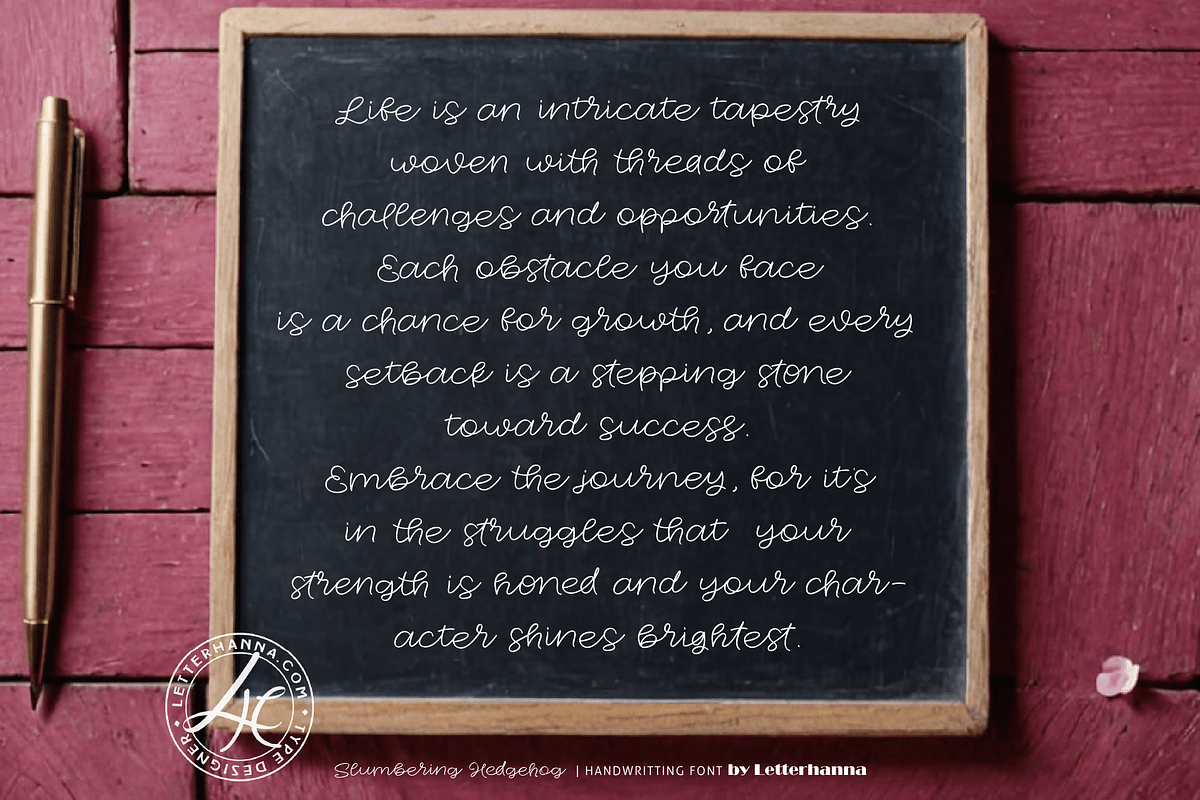 Life is an intricate tapestry
woven with threads of
challenges and opportunities.
Each obstacle you face
is a chance for growth, and every
setback is a stepping stone
toward success.
Embrace the journey, for it's
in the struggles that your
strength is honed and your char-
acter shines brightest.
LETTERHANNA.COM • TYPE DESIGNER •
LH
Slumbering Hedgehog | HANDWRITTING FONT by Letterhanna